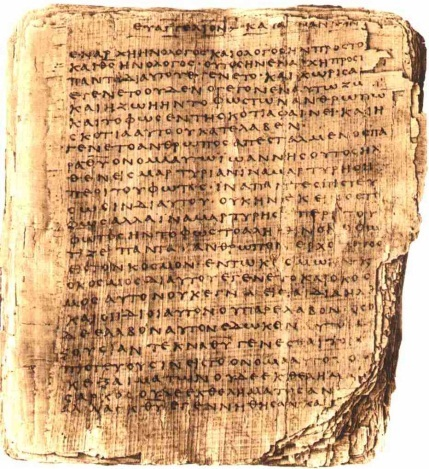 ΕΥΑΓΓΕΛΙΟΝ ΚΑΤΑ
ΕΝ ΑΡΧΗ ΗΝ Ο ΛΟΓΟϹ ΚΑΙ Ο ΛΟΓΟϹ ΗΝ ΠΡΟϹ ΤΟ
ΚΑΙ ΘϹ ΗΝ Ο ΛΟΓΟϹ · ΟΥΤΟϹ ΗΝ ΕΝ ΑΡΧΗ ΠΡΟϹ
ΠΑΝΤΑ ΔΙ ΑΥΤΟΥ ΕΓΕΝΕΤΟ · ΚΑΙ ΧΩΡΙϹ Α
ΕΓΕΝΕΤΟ ΟΥΔΕΝ Ο ΓΕΓΟΝΕΝ ΕΝ ΑΥΤΩ ΖΩ
ΚΑΙ Η ΖΩΗ ΗΝ ΤΟ ΦΩϹ ΤΩΝ ΑΝΘΡΩΠΩ
ΚΑΙ ΤΟ ΦΩϹ ΕΝ ΤΗ ϹΚΟΤΙΑ ΦΑΙΝΕΙ ΚΑΙ Η
ϹΚΟΤΙΑ ΑΥΤΟ ΟΥ ΚΑΤΕΛΑΒΕΝ
ΕΓΕΝΕΤΟ ΑΝΘΡΩΠΟϹ ΑΠΕϹΤΑΛΜΕΝΟϹ ΠΑ
ΡΑ ΘΥ ΟΝΟΜΑ ΑΥΤΩ ΙΩΑΝΝΗϹ ΟΥΤΟϹ ΗΛ
ΘΕΝ ΕΙϹ ΜΑΡΤΥΡΙΑΝ ΙΝΑ ΜΑΡΤΥΡΗϹΗ
ΠΕΡΙ ΤΟΥ ΦΩΤΟϹ · ΙΝΑ ΠΑΝΤΕϹ ΠΙϹΤΕΥ
ϹΩϹΙΝ ΔΙ ΑΥΤΟΥ · ΟΥΚ ΗΝ ΕΚΕΙΝΟϹ ΤΟ
ΦΩϹ ΑΛΛΑ ΙΝΑ ΜΑΡΤΥΡΗϹΗ ΠΕΡΙ ΤΟΥ
ΦΩΤΟϹ ΗΝ ΤΟ ΦΩϹ ΤΟ ΑΛΗΘΙΝΟΝ Ο ΦΩ
ΤΙΖΕΙ ΠΑΝΤΑ ΑΝΘΡΩΠΟΝ ΕΡΧΟΜΕΝΟΝ
ΕΙϹ ΤΟΝ ΚΟϹΜΟΝ ΕΝ ΤΩ ΚΟϹΜΩ ΗΝ
Ο ΚΟϹΜΟϹ ΔΙ ΑΥΤΟΥ ΕΓΕΝΕΤΟ ΚΑΙ Ο ΚΟϹ
ΜΟϹ ΑΥΤΟΝ ΟΥΚ ΕΓΝΩ ΕΙϹ ΤΑ ΙΔΙΑ
ΚΑΙ ΟΙ ΙΔΙΟΙ ΑΥΤΟΝ ΟΥ ΠΑΡΕΛΑΒΟΝ ΟϹΟΙ
ΕΛΑΒΟΝ ΑΥΤΟΝ ΕΔΩΚΕΝ ΑΥΤΟΙϹ Ε
ΞΟΥϹΙΑΝ ΤΕΚΝΑ ΘΥ ΓΕΝΕϹΘΑΙ ΤΟΙϹ
ΠΙϹΤΕΥΟΥϹΙΝ ΕΙϹ ΤΟ ΟΝΟΜΑ ΑΥΤΟΥ Ο
ΕΞ ΑΙΜΑΤΩΝ ΟΥΔΕ ΕΚ ΘΕΛΗΜΑ
ϹΑΡΚΟϹ ΟΥΔΕ ΕΚ ΘΕΛΗΜΑΤΟϹ ΑΝ
ΑΛΛΑ ΕΚ ΘΥ ΕΓΕΝΝΗΘΗϹΑΝ ΚΑΙ